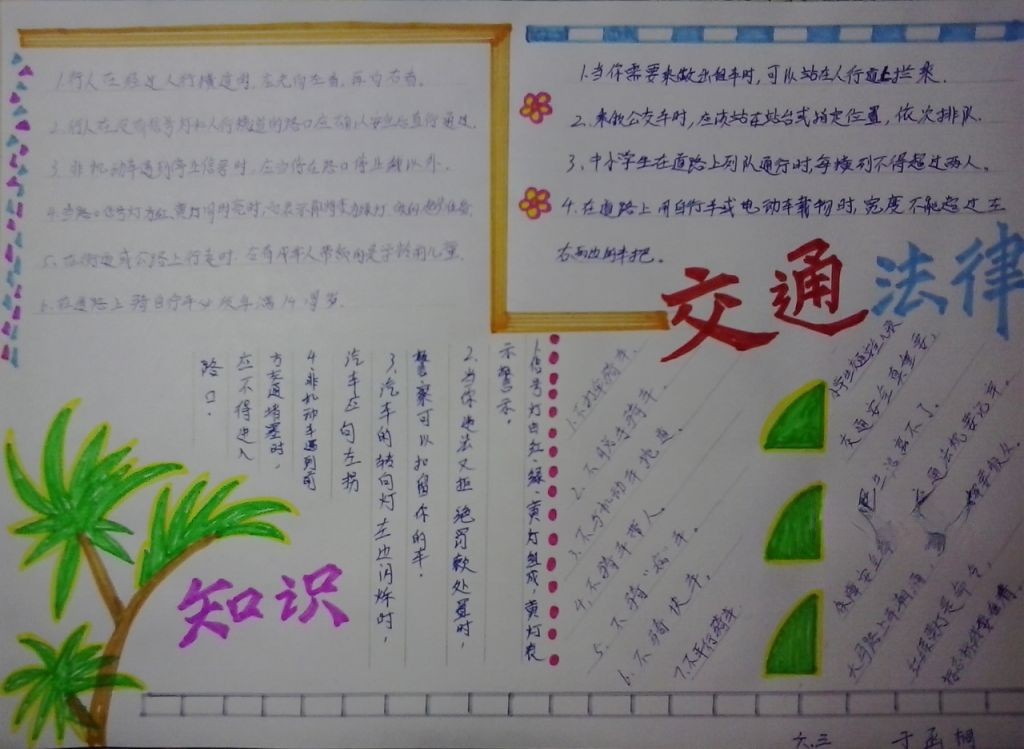 1.行人在经过人行横道时,应先向左看,再向右看。
2.行人在没有信号灯和人行横道的路口应确认安全后直行通过。
3.非机动车遇到停止信号时,应当停在路口停止线以外。
4.当路口信号灯为红,黄灯同时亮时,它表示即将变为绿灯
5.在街道或公路上行走时,应有成年人带领的是学龄前儿童
6.在道路上骑自行车必须年满14周岁。
1.当你需要乘做出租车时,可以站在人行道上拦乘
2.乘做公交车时,应该站在站台或指定位置,依次排队.
3.中小学生在道路上列队通行时,每横列不得超过两人.
4.在道路上用自行车或电动车载物时,宽度不能超过左
右两边的车把。
交通法律
知识
1.信号灯由红、绿、黄灯组成,黄灯表
示警示.
2.当你违法又拒绝罚款处置时,
警察可以扣留你的车.
3.汽车的转向灯左边闪烁时,
汽车应向左拐
4.非机动车遇到前
方交通堵塞时,
应不得进入
路口.
2.不脱手骑车.
3.不与机动车抢道.
4.不骑车带人.
5.不骑"病"车.
6.不骑快车.
7.不平行骑车
交通安全真重要,
交通法规要记牢.
大马路上车潮涌,
六.三 于函桐